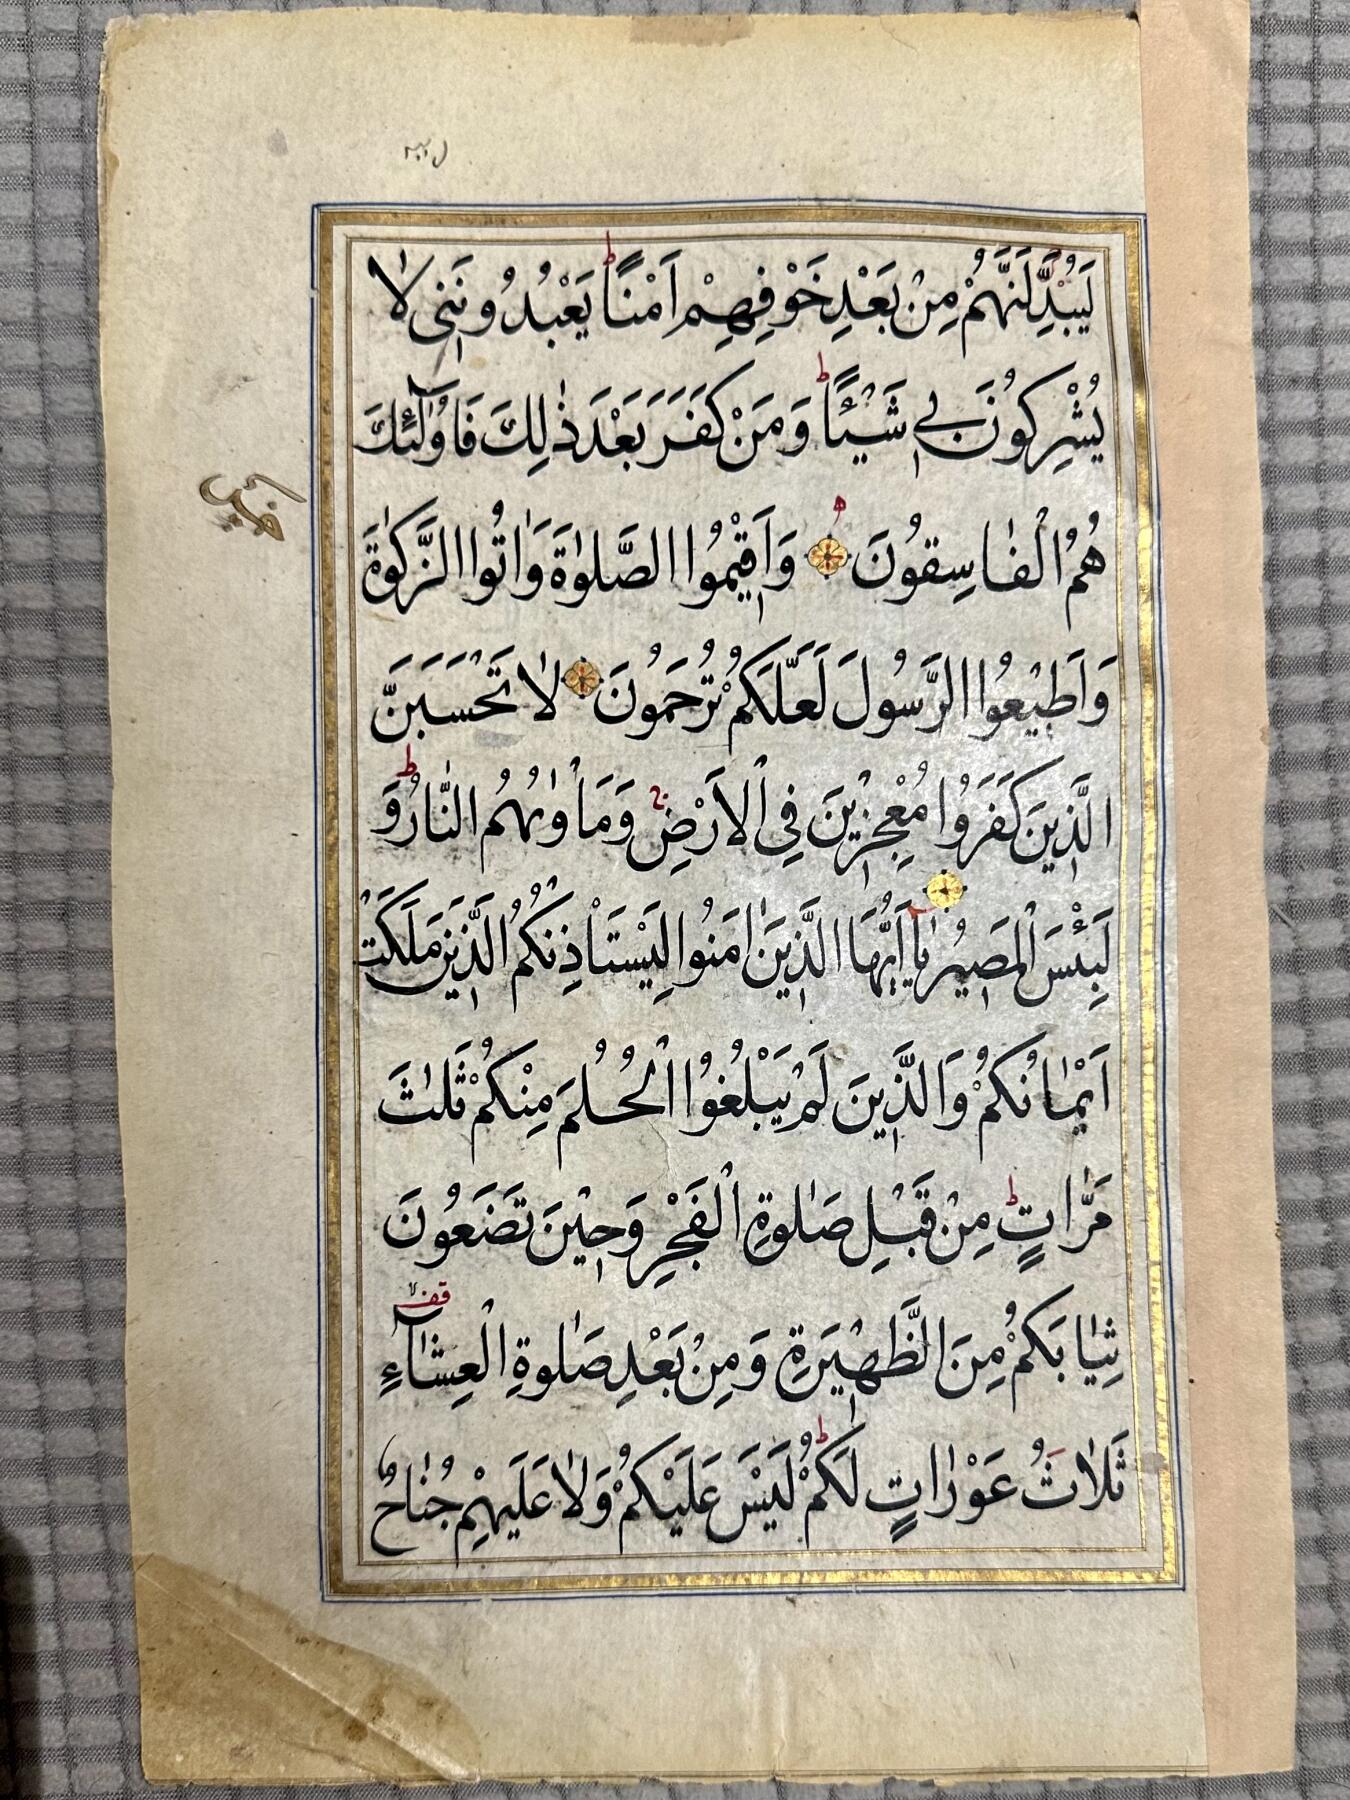 لَيُبَدِّلَنَّهُمْ مِنْ بَعْدِ خَوْفِهِمْ اَمْنًا ط يَعْبُدُونَنِى لَا
يُشْرِكُونَ بِى شَيْـًٔا ط وَمَنْ كَفَرَ بَعْدَ ذٰلِكَ فَاُولٰٓئِكَ
هُمُ الْفٰاسِقُونَ ه وَاَقِيْمُوا الصَّلٰوةَ وَاٰتُوا الزَّكٰوةَ
وَاَطِيْعُوا الرَّسُولَ لَعَلَّكُمْ تُرْحَمُونَ لٰا تَحْسَبَنَّ
الَّذِينَ كَفَرُوا مُعْجِزِيْنَ فِى الْاَرْضِ ج وَمَاْوٰيهُمُ النّٰارُ ط وَ
لَبِئْسَ الْمَصِيْرُ يٰٓا اَيُّهَا الَّذِيْنَ اٰمَنُوا لِيَسْتَاْذِنْكُمُ الَّذِيْنَ مَلَكَتْ
اَيْمٰانُكُمْ وَالَّذِيْنَ لَمْ يَبْلُغُوا الْحُلُمَ مِنْكُمْ ثَلٰثَ
مَرّٰاتٍ ط مِنْ قَبْلِ صَلٰوةِ الْفَجْرِ وَحِيْنَ تَضَعُونَ
ثِيٰابَكُمْ مِنَ الظَّهِيْرَةِ وَمِنْ بَعْدِ صَلٰوةِ الْعِشٰٓاءِ قف
ثَلٰاثُ عَوْرٰاتٍ لَكُمْ ط لَيْسَ عَلَيْكُمْ وَلٰا عَلَيْهِمْ جُنٰاحٌ